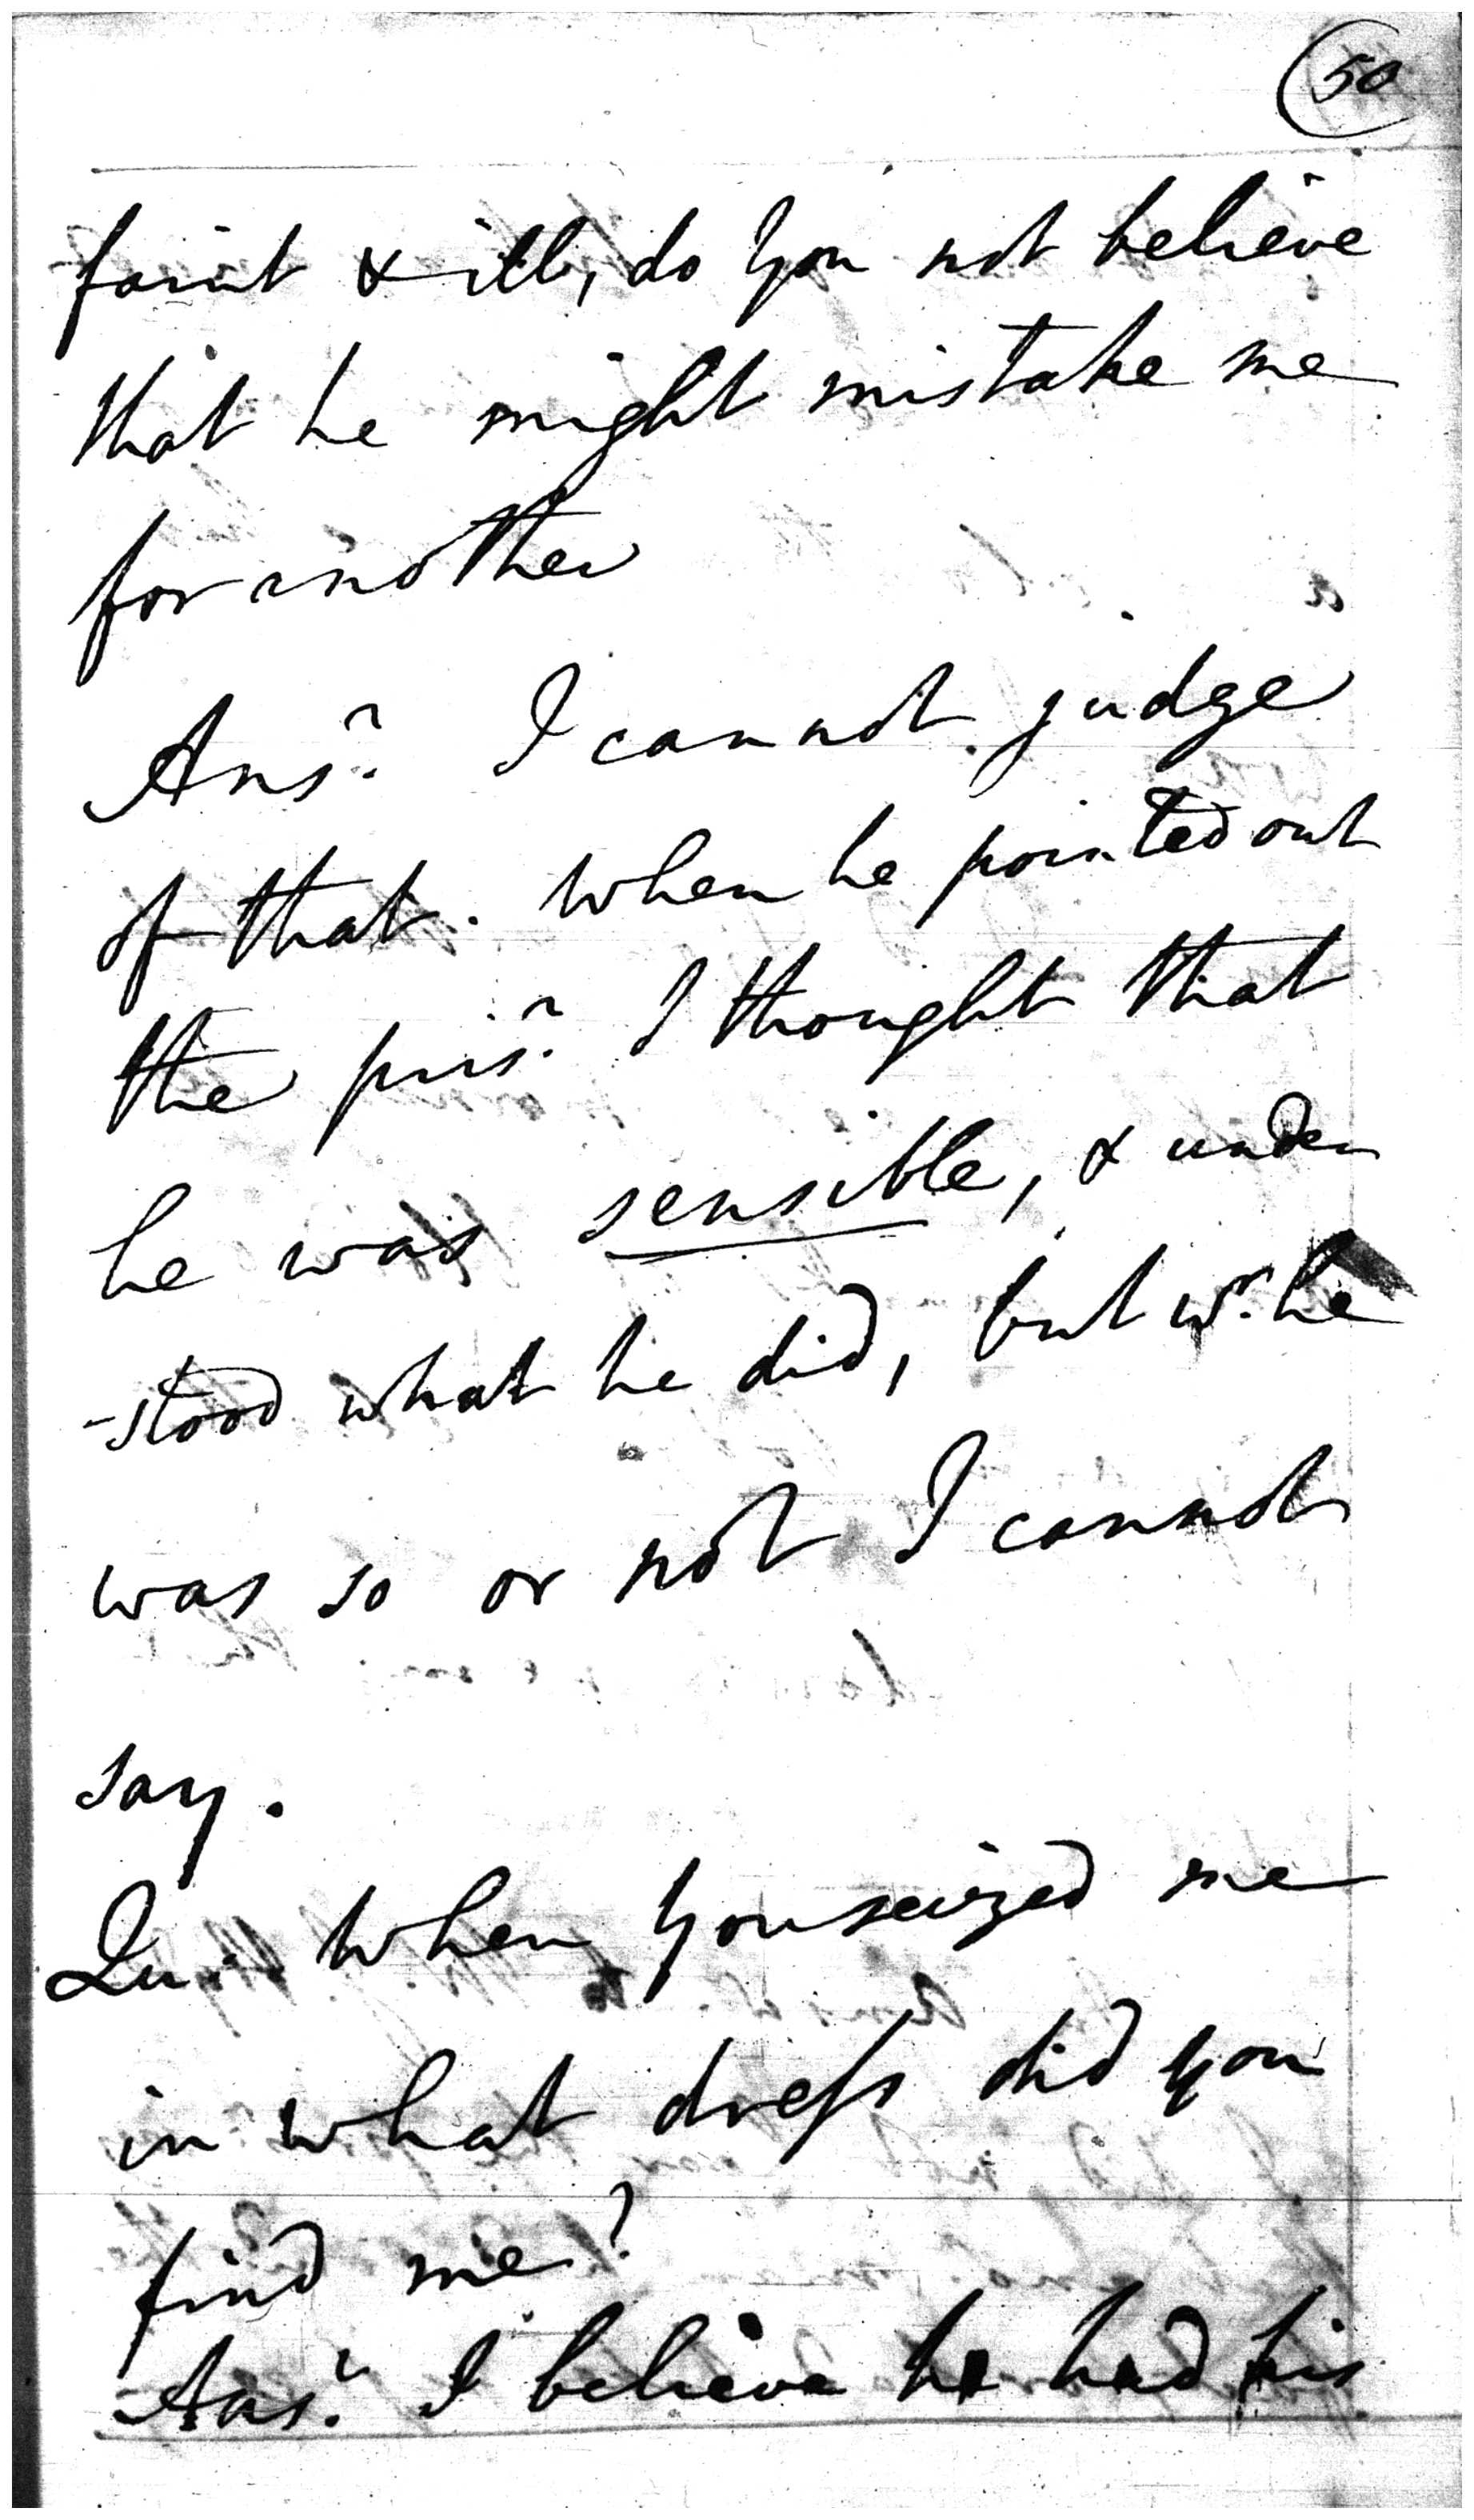 50
faint & ill, do you not believe
that he might mistake me
for another
Ansr. I cannot judge
of that. When he pointed out
the prisr. I thought that
he was sensible, & under
-stood what he did, but wr. he
was so or not I cannot
say.
Qu. When you seized me
in what dress did you
find me?
Ansr. I believe he had his